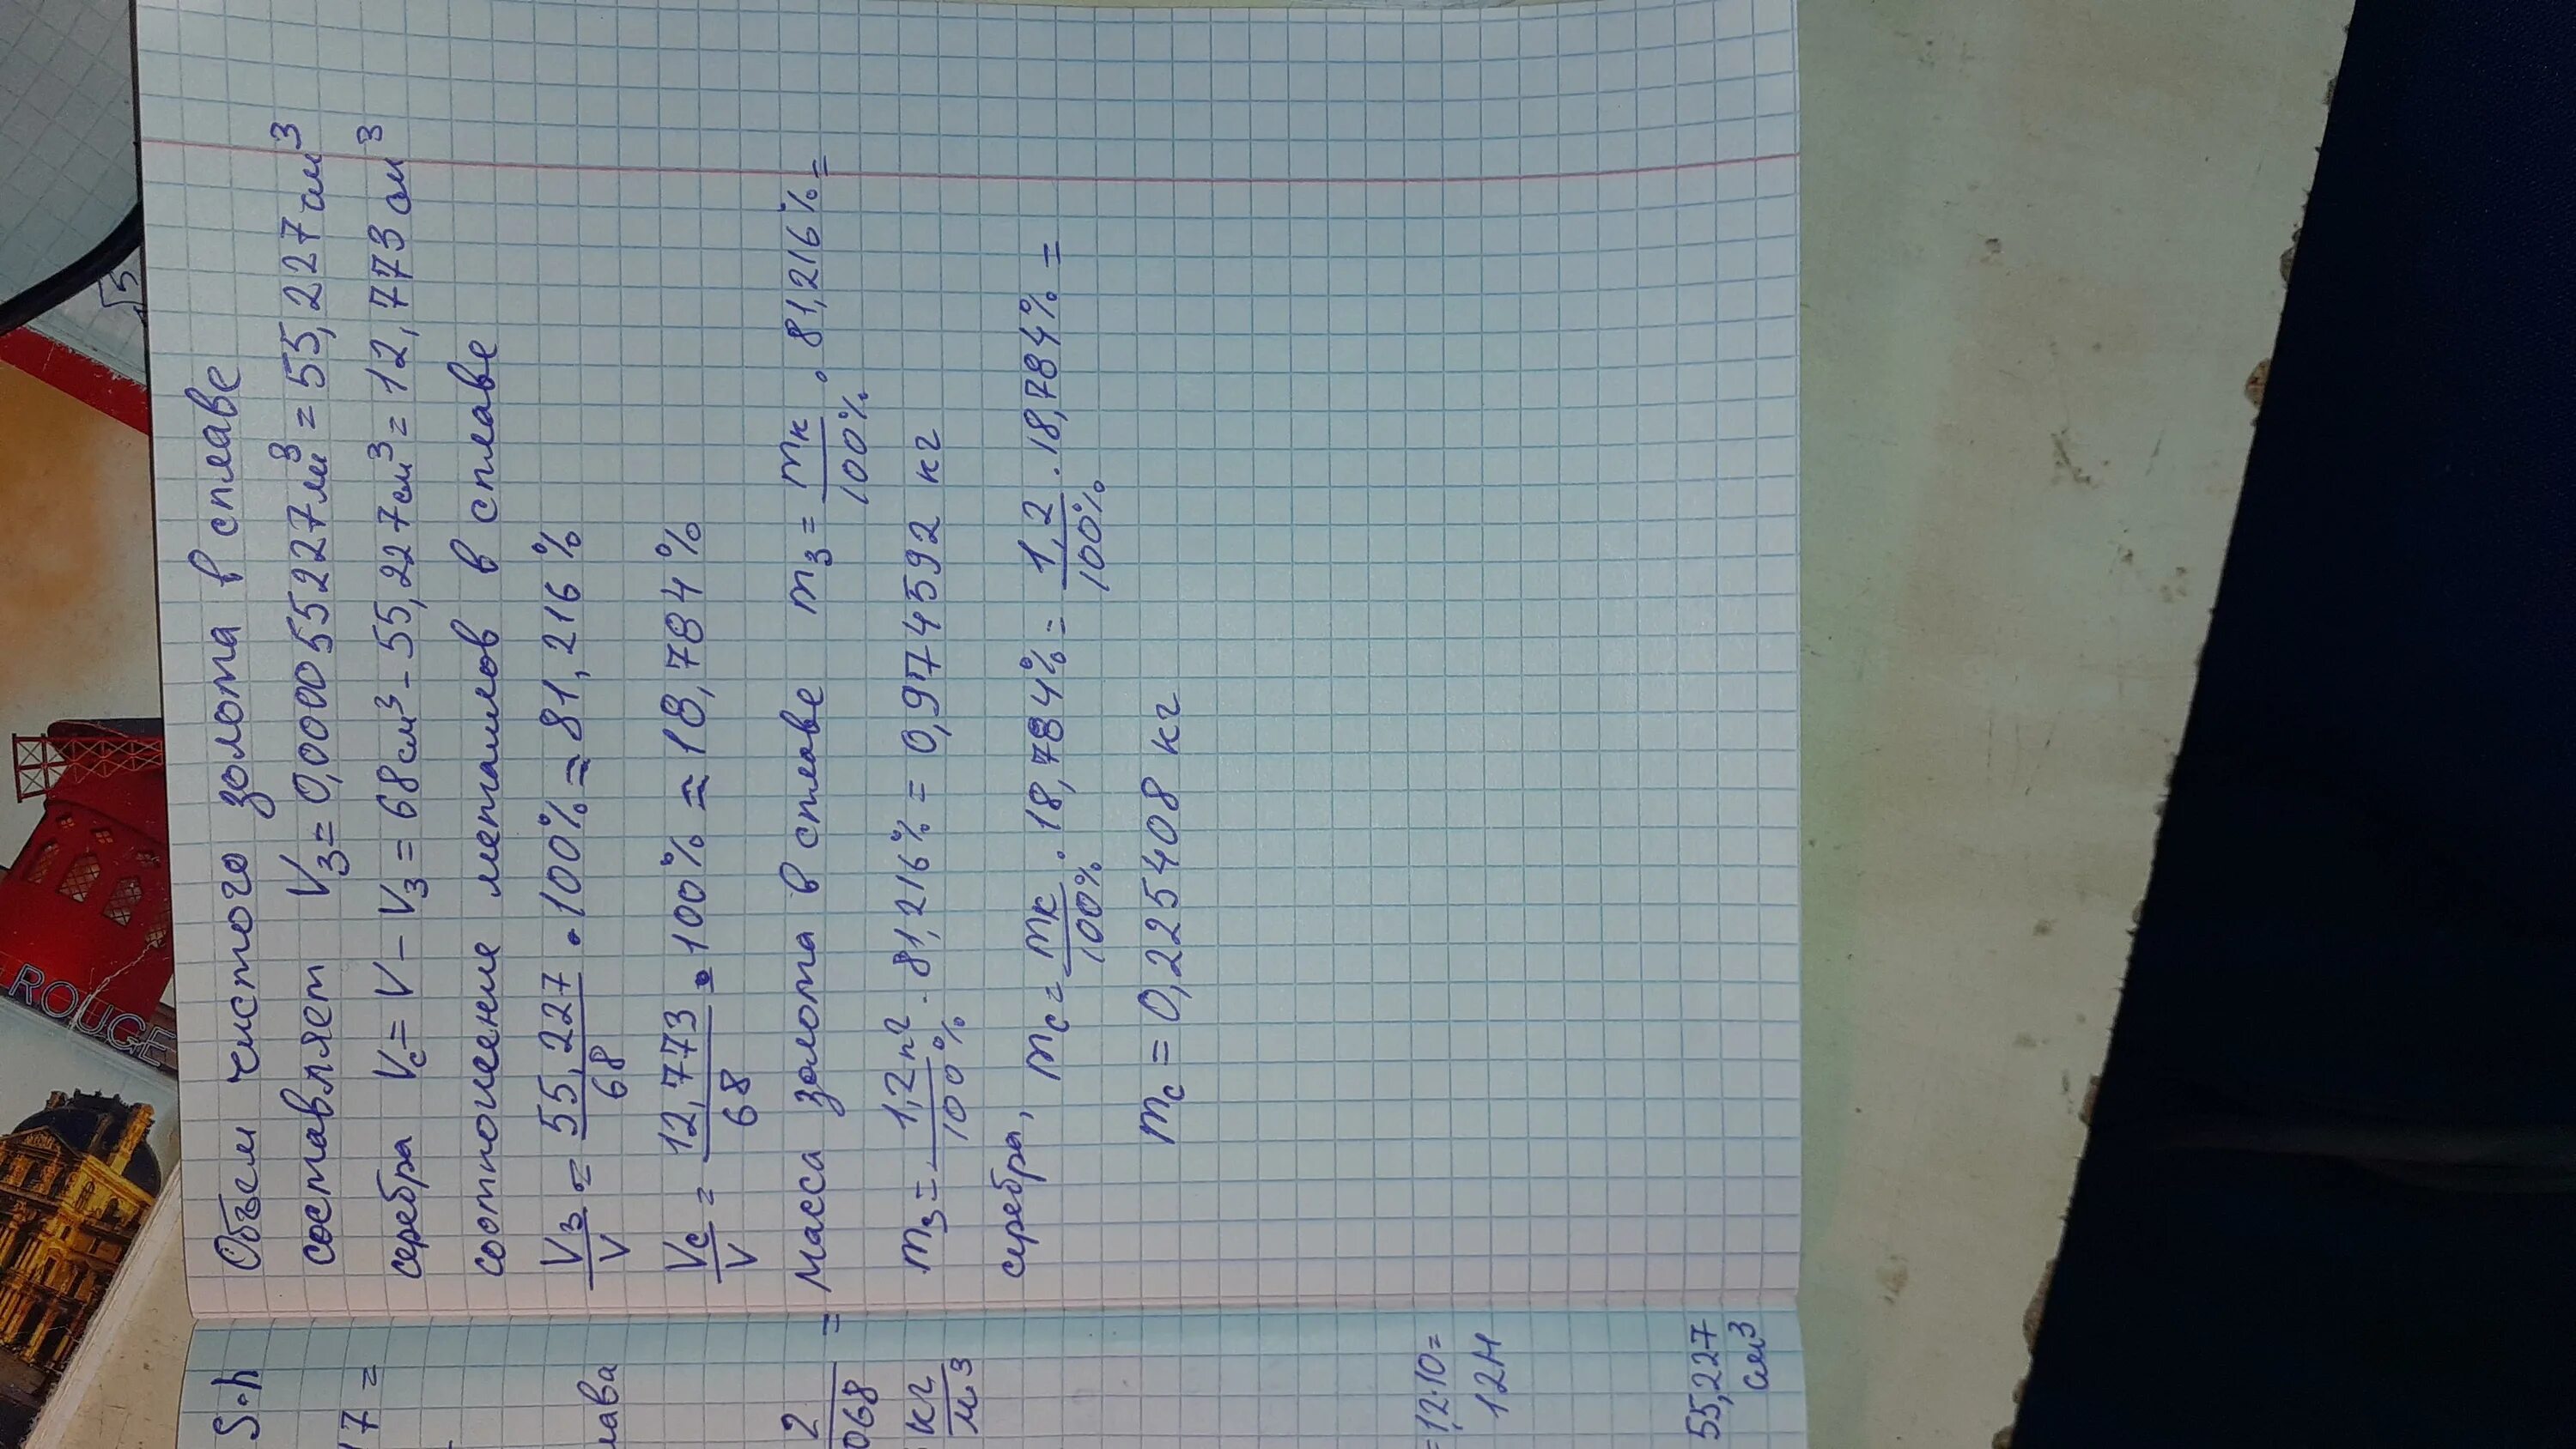 Объем чистого золота в сплаве
составляет V₃ = 0,000055227 м³ = 55,227 см³
серебра Vc = V – V₃ = 68 см³ – 55,227 см³ = 12,773 см³
соотношение металлов в сплаве
V₃/V = 55,227/68 · 100% ≈ 81,216%
Vc/V = 12,773/68 · 100% ≈ 18,784%
Масса золота в сплаве m₃ = mк/100% · 81,216% =
m₃ = 1,2 кг/100% · 81,216% = 0,974592 кг
серебра, mc = mк/100% · 18,784% = 1,2/100% · 18,784% =
mc = 0,225408 кг
S·h
17 =
лава
2/068 =
кг/м³
= 1,2·10 =
12 Н
55,227
см³
ROUGE
√5